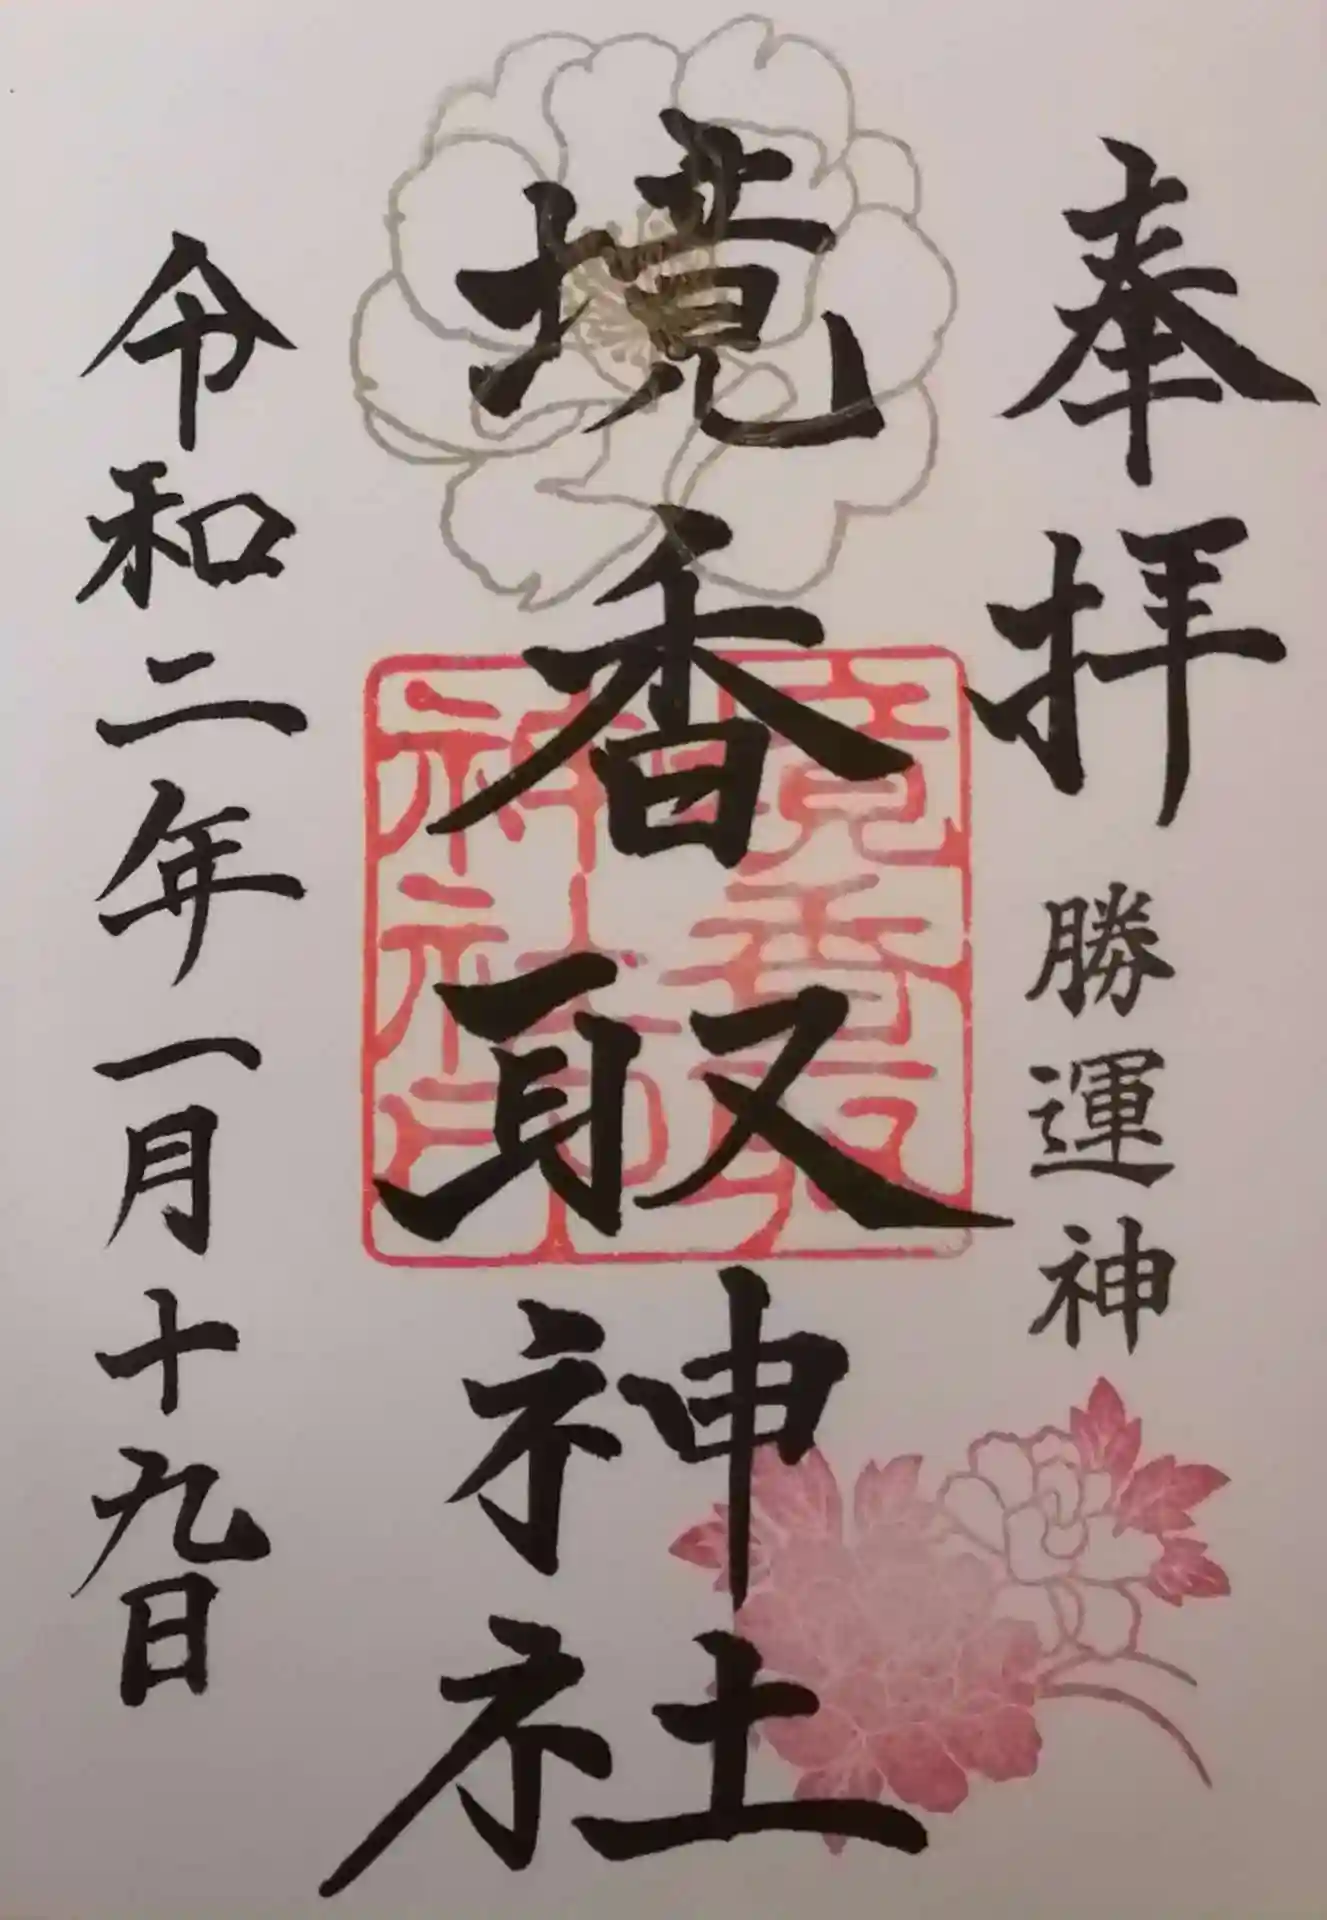 奉拝 勝運神
境香取神社
令和二年一月十九日
境香取神社印